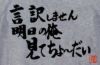 言訳しません
明日の俺
見てちょ~だい